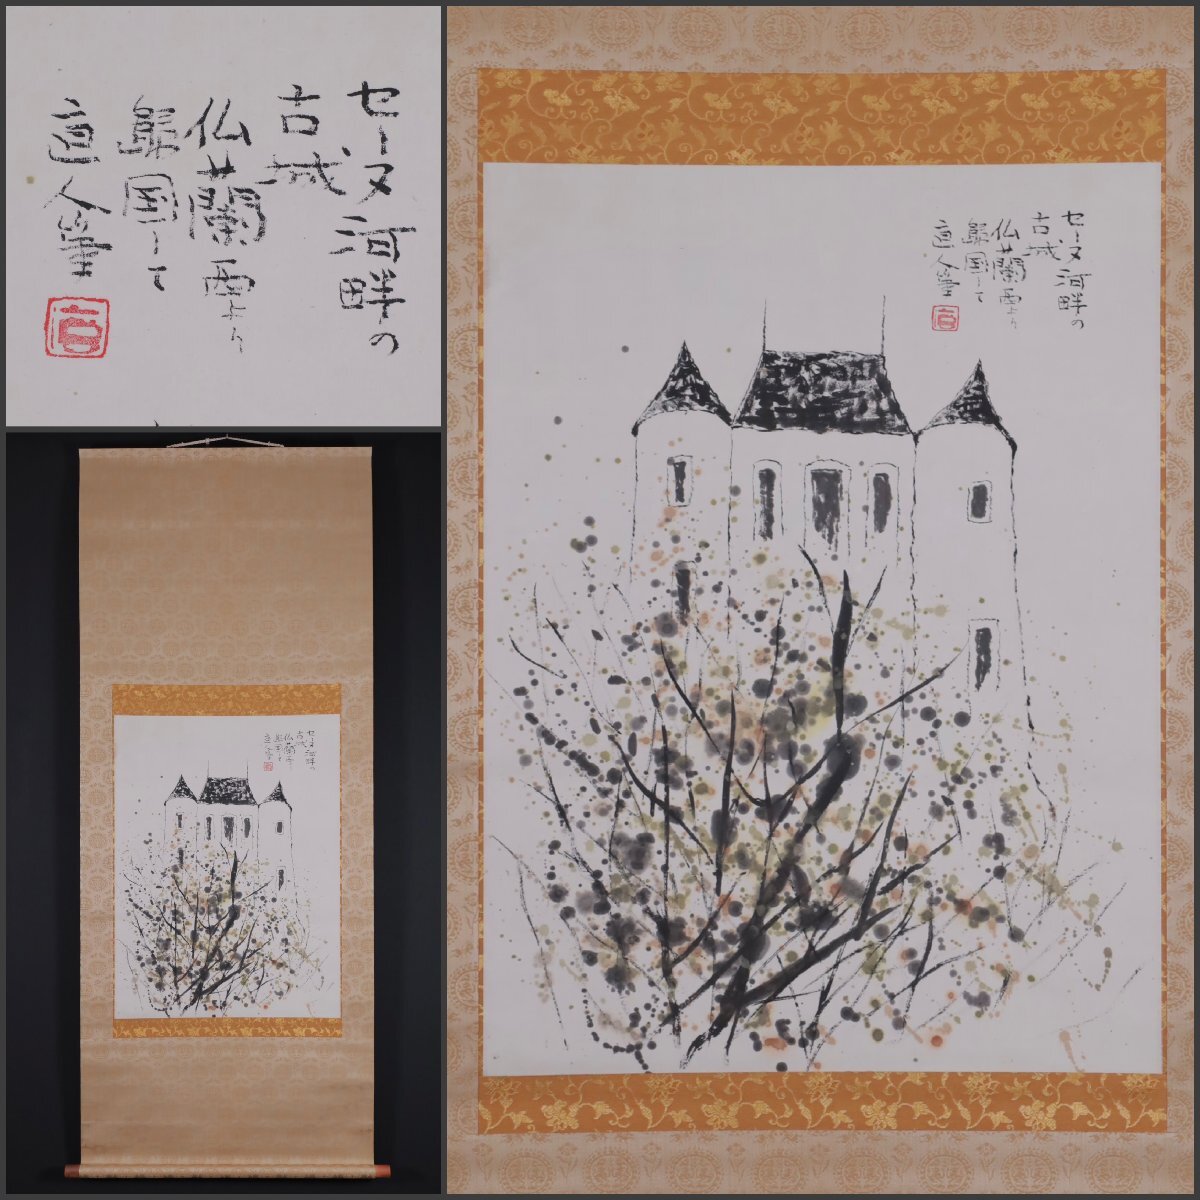 セーヌ河畔の
古城
仏蘭西より
歸国して
直人筆
セーヌ河畔の
古城
仏蘭西より
歸国して
直人筆